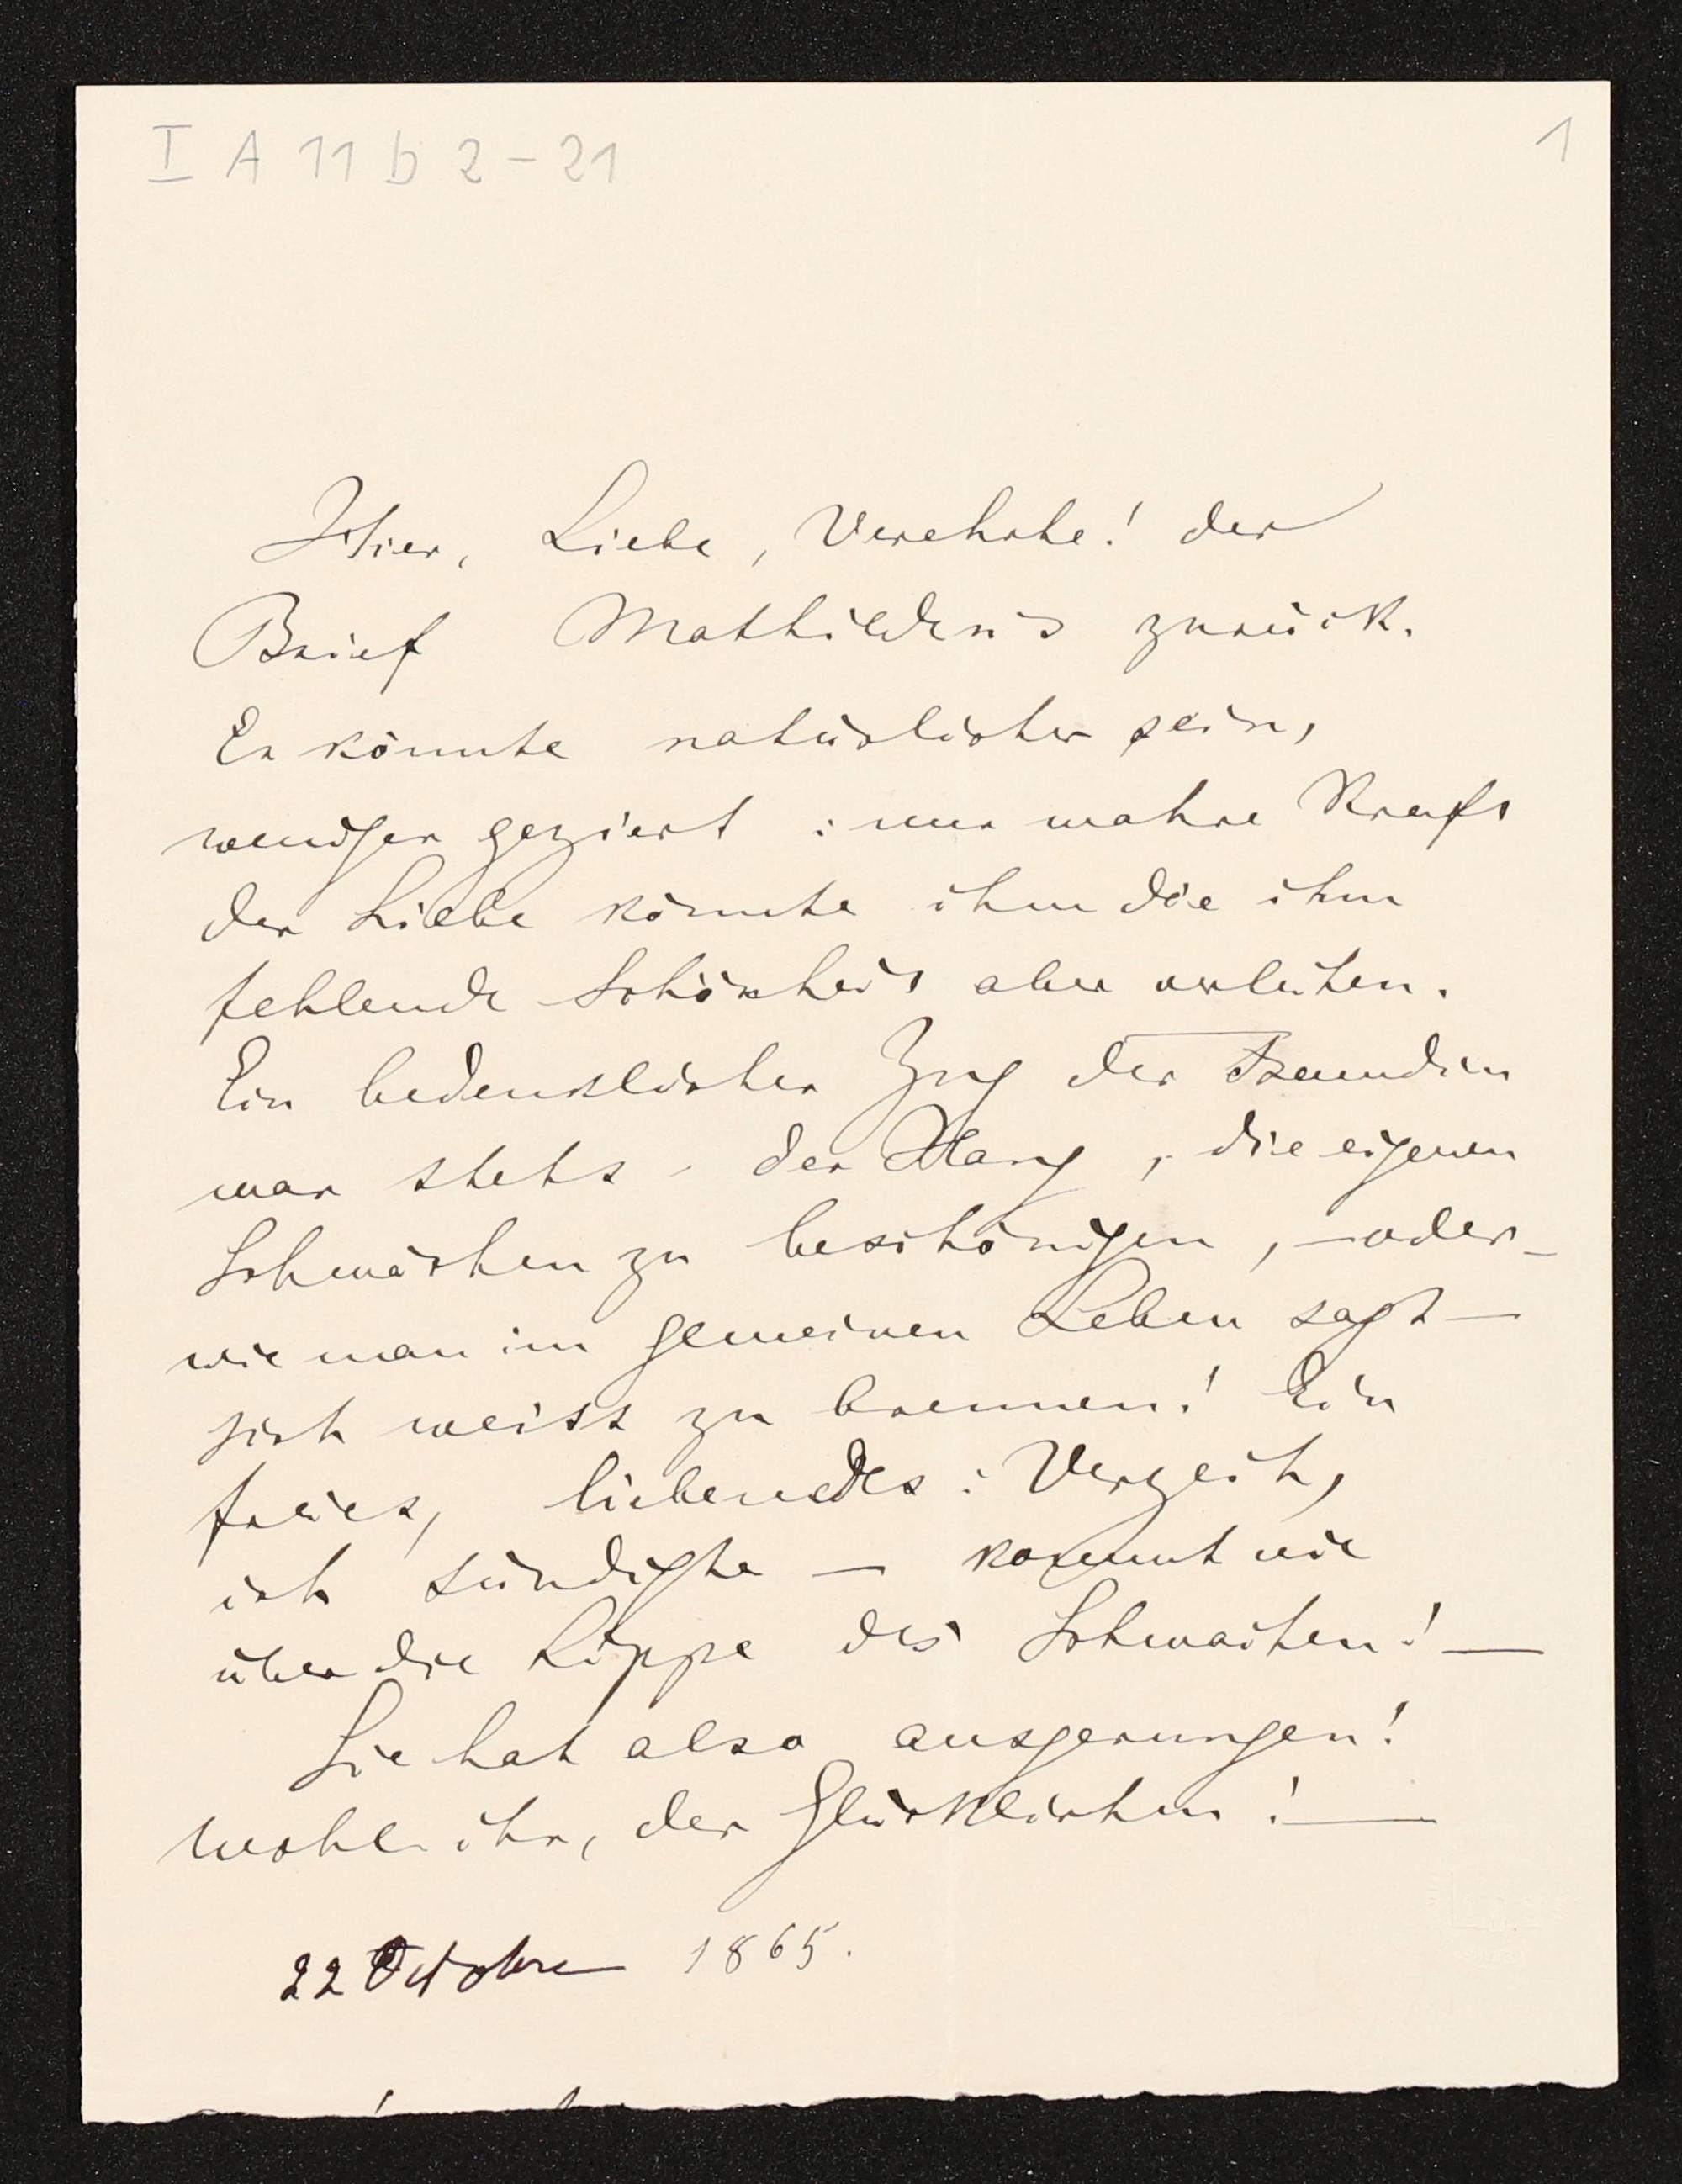 I A 11 b 2-21
1
Hier, Liebe, Verehrte! der
Brief Mathilden's zurück.
Er könnte natürlicher sein,
weniger geziert: nur wahre Kraft
der Liebe könnte ihm die ihm
fehlende Schönheit aber verleihen.
Ein bedenklicher Zug der Freundin
war stets, der Hang, die eigenen
Schwächen zu beschönigen, – oder –
wie man im gemeinen Leben sagt –
sich weiss zu brennen! Ein
freies, liebendes: Verzeih,
ich sündigte – kommt nie
über die Lippe des Schwachen! –
Sie hat also ausgerungen!
wohl ihr, der Glücklichen! –
22 October 1865.